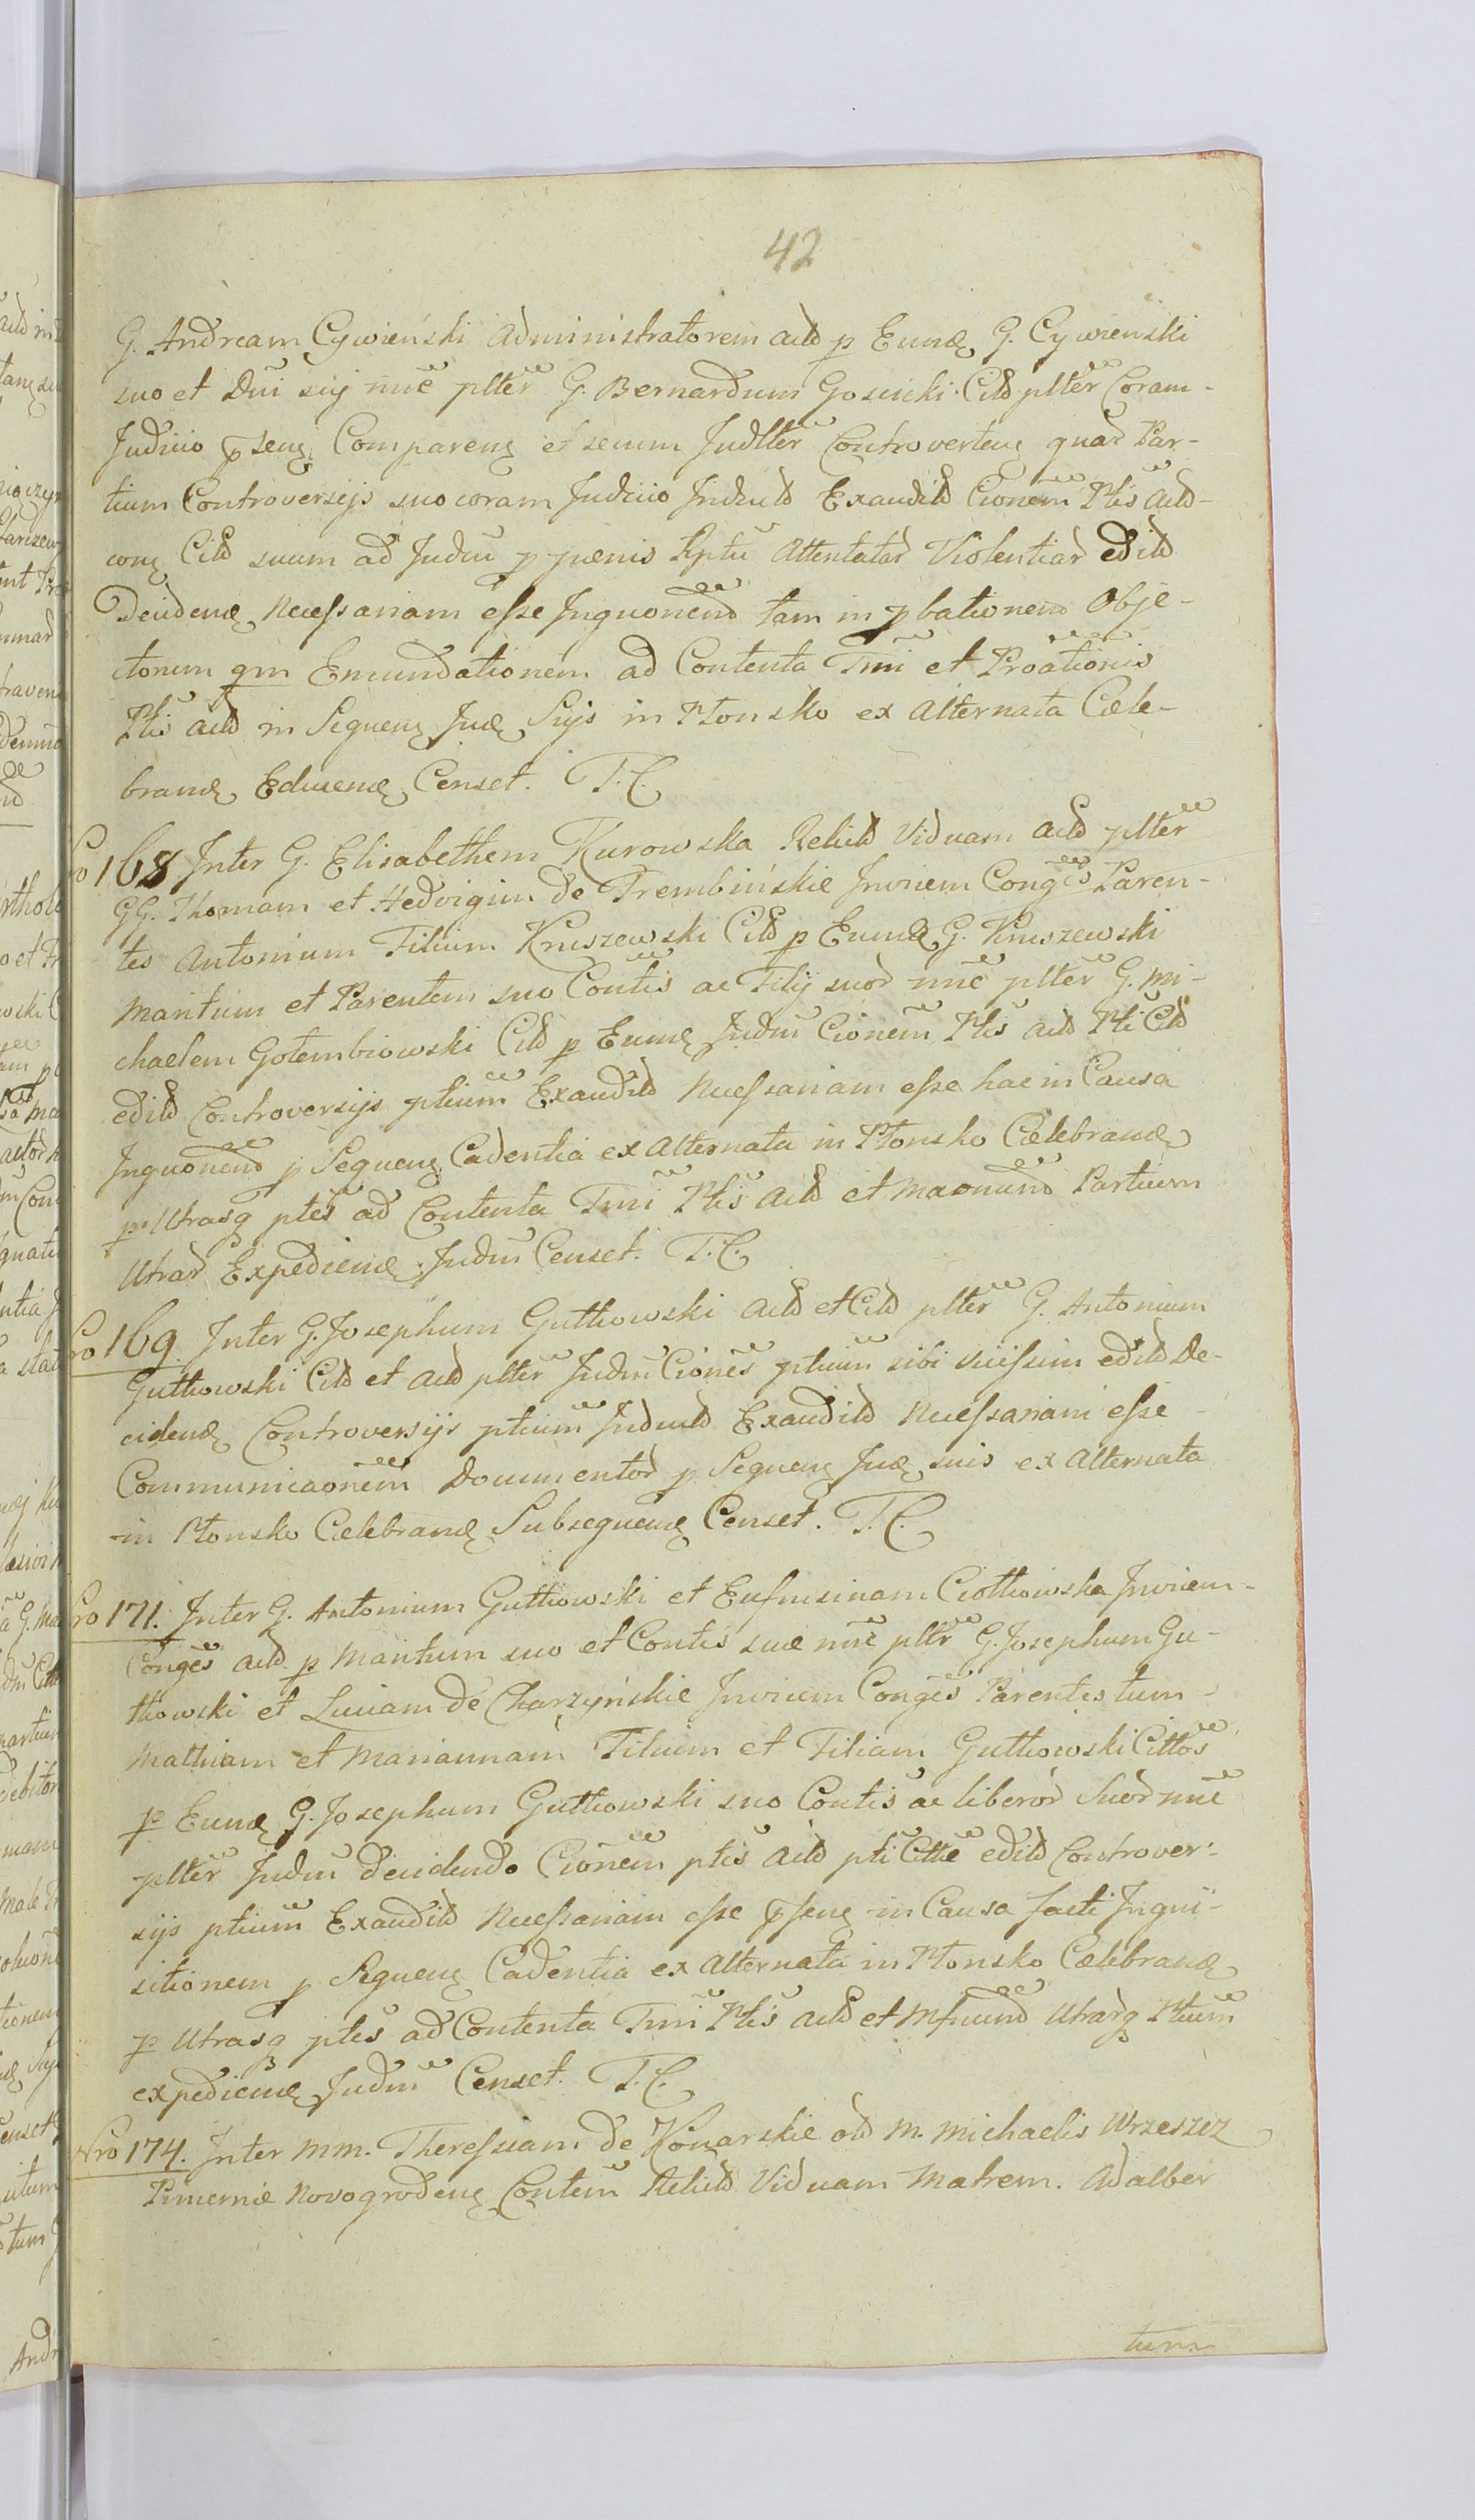 42
G. Andream Cywieński Administratorem actd p Eundę G. Cywienski
suo et Dni sui nnẽ plter G. Bernardum Gosiicki Citd plter Coram-
Judicio pseng Compareng et secum Judlter Controverteng quard Par-
tium Controversijs suo coram Judicio Inductd Exauditd Cionem Ptis Actd-
Citd suum ad Judm p pænis Rptu Attentatard Violentiard editd
Decidendę Necessariam esse Inquonend tam in pbationem Obje-
ctorum qm Emundationem ad Contenta Tmi et Proationis
Ptis actd in Sequeng Judę Sujs in Płonsko ex Alternata Cele-
brandę Educendę Censet. T. C.
Nro 168 Inter G. Elisabethem Kurowska Relictd Viduam actd plter
GG. Thomam et Hedvigim de Trembińskie Invicem Conges Paren-
tes Antonium Filium Kruszewski Citd p Eundę G. Kruszewski
Maritum et Parentem suo Contis ac Filij suord nnẽ plter G. Mi-
chaelem Gołembiowski Citd p Eundę Judm Cionem Ptis actd Pti Citd
editd Controversijs ptium Exauditd Necessariam esse hac in Causa
Inquonend p Sequeng Cadentia ex Alternata in Płonsko Celebrandę
p Utrasq ptes ad Contenta Tmi Ptis actd et Partium
Utrard Expediendę Judm Censet. T. C.
Nro 169. Inter G. Josephum Gutkowski actd et Citd plter G. Antonium
Gutkowski Citd et actd plter Judm Ciones ptium sibi vicissim editd De-
cidendę Controversijs ptium Inductd Exauditd Necessariam esse
Communicaonem Documentord p Sequeng Judę suis ex Alternata
in Płonsko Celebrandę Subsequendę Censet. T. C.
Nro 171. Inter G. Antonium Gutkowski et Eufrusinam Ciołkowska Invicem-
Conges actd p Maritum suo et Contis suæ nnẽ plter G. Josephum Gu-
tkowski et Luciam de Charzyńskie Invicem Conges Parentes tum-
Mathiam et Mariannam Filium et Filiam Gutkowski Cittos
p Eundę G. Josephum Gutkowski suo Contis ac liberord Suord nnẽ
plter Judm decidendo Cionem ptis actd pti Citte editd Controver-
sijs ptium Exauditd Necessariam esse pseng in Causa facti Inqui-
sitionem p Sequeng Cadentia ex Alternata in Płonsko Celebrandę
p Utrasq ptes ad Contenta Tmi Ptis actd et Utrarq Ptium
expediendę Judm Censet. T. C.
Nro 174. Inter MM. Theressiam de Konarskie old M. Michaelis Wrzeszcz
Pincernæ Novogrodeng Contem Relictd Viduam Matrem. Adalber
tum